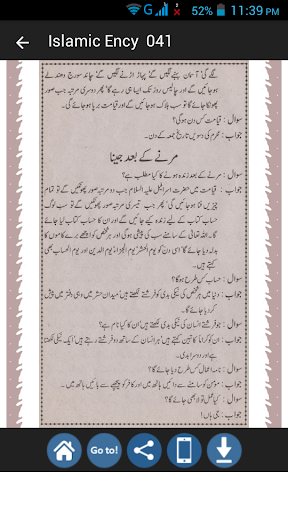 11:39 PM
52%
Islamic Ency 041
لگے گی آسمان پھٹنے لگیں گے پہاڑ اڑنے لگیں گے چاند سورج دھندلے
ہو جائیں گے اور چالیس روز تک ایسا ہی رہے گا پھر دوسری مرتبہ جب صور
پھونکا جائے گا تو سب ہلاک ہو جائیں گے اور قیامت برپا ہو جائے گی۔
سوال : قیامت کس دن ہوگی؟
جواب : محرم کی دسویں تاریخ جمعہ کے دن۔
مرنے کے بعد جینا
سوال : مرنے کے بعد زندہ ہونے کا کیا مطلب ہے؟
جواب : قیامت میں حضرت اسرافیل علیہ السلام جب دوسری مرتبہ صور پھونکیں گے تو تمام
چیزیں فنا ہو جائیں گی، پھر جب تیسری مرتبہ صور پھونکیں گے تو سب لوگ
حساب کتاب کے لیے زندہ کیے جائیں گے اور ان کا حساب کتاب لیا جائے
گا۔ اللہ تعالیٰ کے سامنے سب کی پیشی ہوگی اور ہر شخص کو اچھے برے کاموں کا
بدلہ دیا جائے گا، اسی دن کو یوم الحشر، یوم الجزاء، یوم الدین اور یوم الحساب بھی
کہتے ہیں۔
سوال : حساب کس طرح ہوگا؟
جواب : دنیا میں ہر شخص کی نیکی بدی کو فرشتے لکھتے ہیں، میدان حشر میں وہی دفتر میں پیش
کر دیا جائے گا۔
سوال : جو فرشتے انسان کی نیکی بدی لکھتے ہیں، ان کا نام کیا ہے؟
جواب : ان کو کراماً کاتبین کہتے ہیں، ہر انسان کے ساتھ دو فرشتے رہتے ہیں، ایک نیکی لکھتا
ہے اور دوسرا بدی۔
سوال : نامہ اعمال کس طرح دیا جائے گا؟
جواب : مومن کو سامنے سے دائیں ہاتھ میں۔ اور کافر کو پیچھے سے بائیں ہاتھ میں۔
سوال : کیا عمل تولا بھی جائے گا؟
جواب : جی ہاں!
Go to!